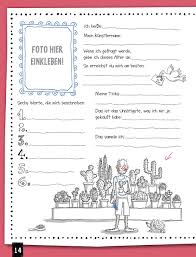 Ich heiße
Mein Künstlername:
FOTO HIER
EINKLEBEN!
Wenn ich gefragt werde,
gebe ich dieses Alter an:
So erreichst du mich am besten:
Meine Tricks:
Sechs Worte, die mich beschreiben:
1.
2.
3.
4.
5.
6.
Das ist das Unnötigste, was ich mir je
gekauft habe:
Das sammle ich:
14